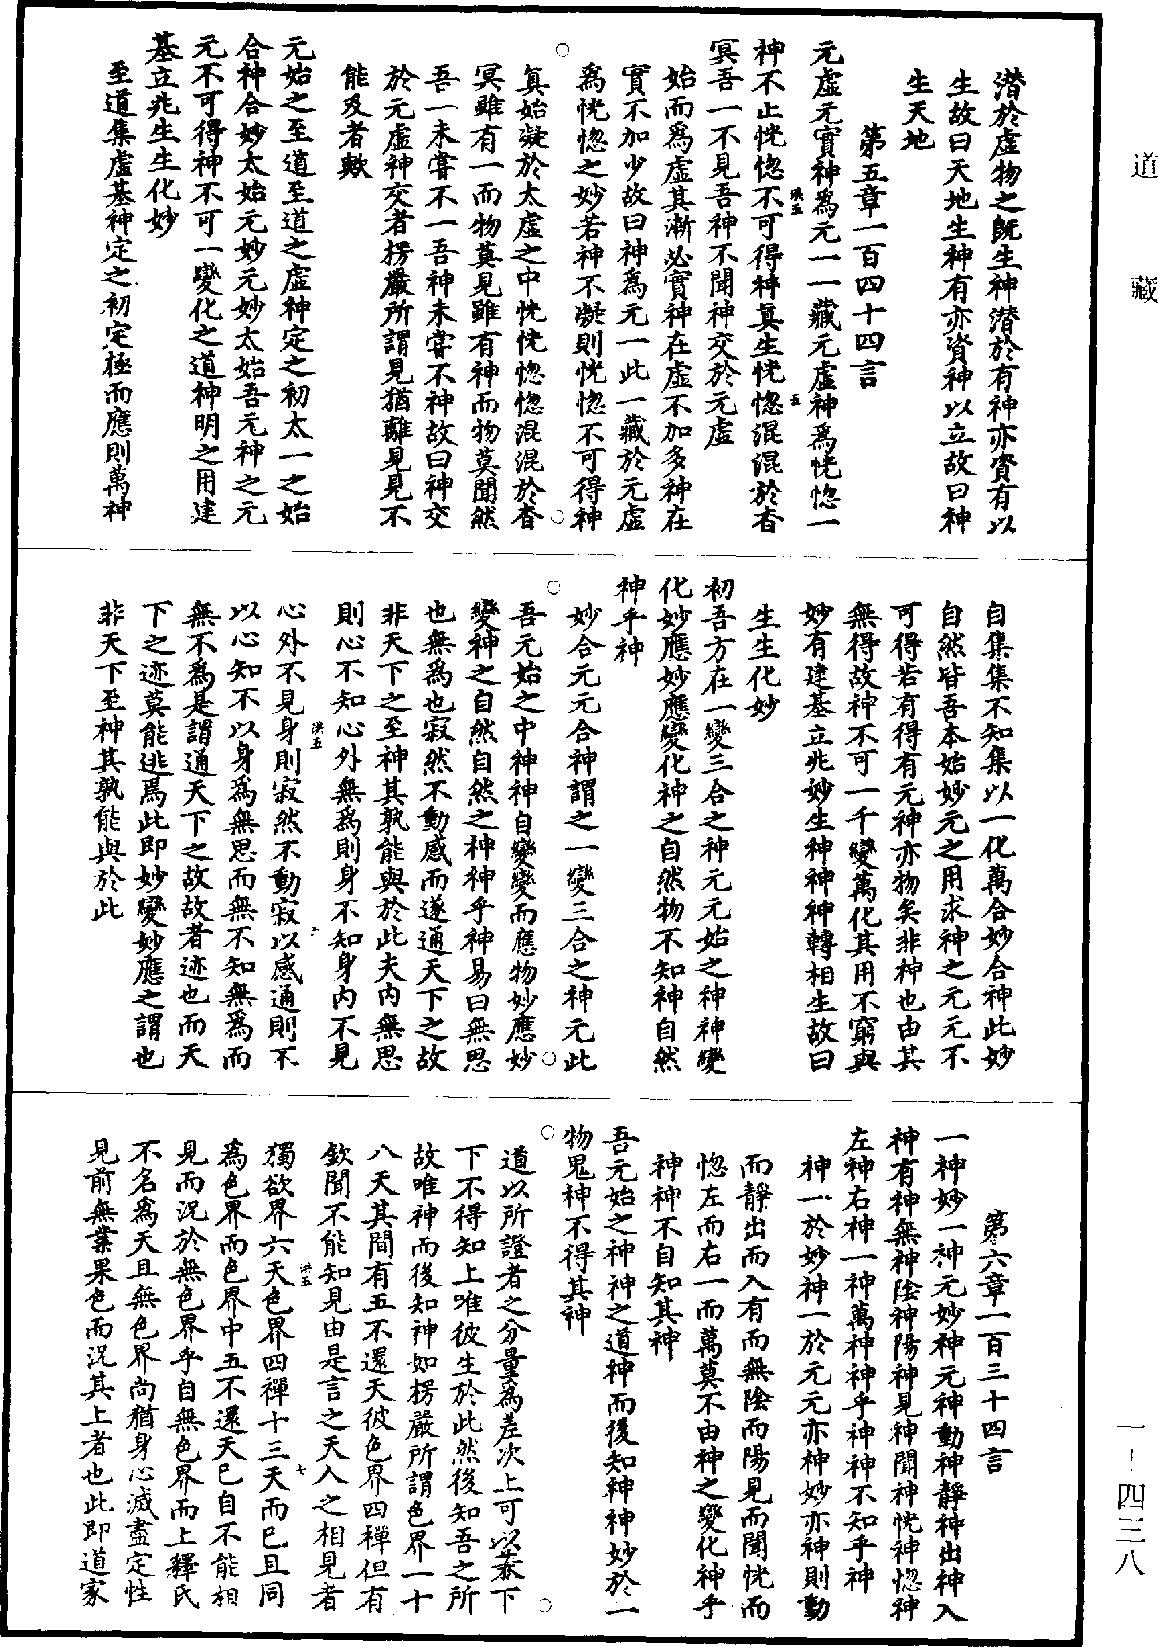 道藏
潜於虛物之旣生神潜於有神亦資有以
生故曰天地生神有亦資神以立故曰神
生天地
第五章一百四十四言
元虛元實神爲元一一藏元虛神爲恍惚一
神不止恍惚不可得神真生恍惚混混於杳
冥吾一不見吾神不聞神交於元虛
始而爲虛其漸必實神在虛不加多神在
實不加少故曰神爲元一此一藏於元虛
爲恍惚之妙若神不凝則恍惚不可得神
真始凝於太虛之中恍恍惚惚混混於杳
冥雖有一而物莫見雖有神而物莫聞然
吾一未嘗不一吾神未嘗不神故曰神交
於元虛神交者楞嚴所謂見猶離見見不
能及者歟
元始之至道至道之虛神定之初太一之始
合神合妙太始元妙元妙太始吾元神之元
元不可得神不可一變化之道神明之用建
基立兆生生化妙
至道集虛基神定之初定極而應則萬神
自集集不知集以一化萬合妙合神此妙
自然皆吾本始妙元之用求神之元元不
可得若有得有元神亦物矣非神也由其
無得故神不可一千變萬化其用不窮與
妙有建基立兆妙生神神神轉相生故曰
生生化妙
初吾方在一變三合之神元元始之神神變
化妙應妙應變化神之自然物不知神自然
神乎神
妙合元元合神謂之一變三合之神元此
吾元始之中神神自變變而應物妙應妙
變神之自然自然之神神乎神易曰無思
也無爲也寂然不動感而遂通天下之故
非天下之至神其孰能與於此夫内無思
則心不知心外無爲則身不知身内不見
心外不見身則寂然不動寂以感通則不
以心知不以身爲無思而無不知無爲而
無不爲是謂通天下之故故者迹也而天
下之迹莫能逃焉此即妙變妙應之謂也
非天下至神其孰能與於此
第六章一百三十四言
一神妙一神元妙神元神動神靜神出神入
神有神無神陰神陽神見神聞神恍神惚神
左神右神一神萬神神乎神神不知乎神
神一於妙神一於元元亦神妙亦神則動
而靜出而入有而無陰而陽見而聞恍而
惚左而右一而萬莫不由神之變化神乎
神神不自知其神
吾元始之神神之道神而後知神神妙於一
物鬼神不得其神
道以所證者之分量爲差次上可以忝下
下不得知上唯彼生於此然後知吾之所
故唯神而後知神如楞嚴所謂色界一十
八天其間有五不還天彼色界四禪但有
欽聞不能知見由是言之天人之相見者
獨欲界六天色界四禪十三天而巳且同
爲色界而色界中五不還天巳自不能相
見而況於無色界乎自無色界而上釋氏
不名爲天且無色界尚猶身心滅盡定性
見前無業果色而況其上者也此即道家
一－四三八